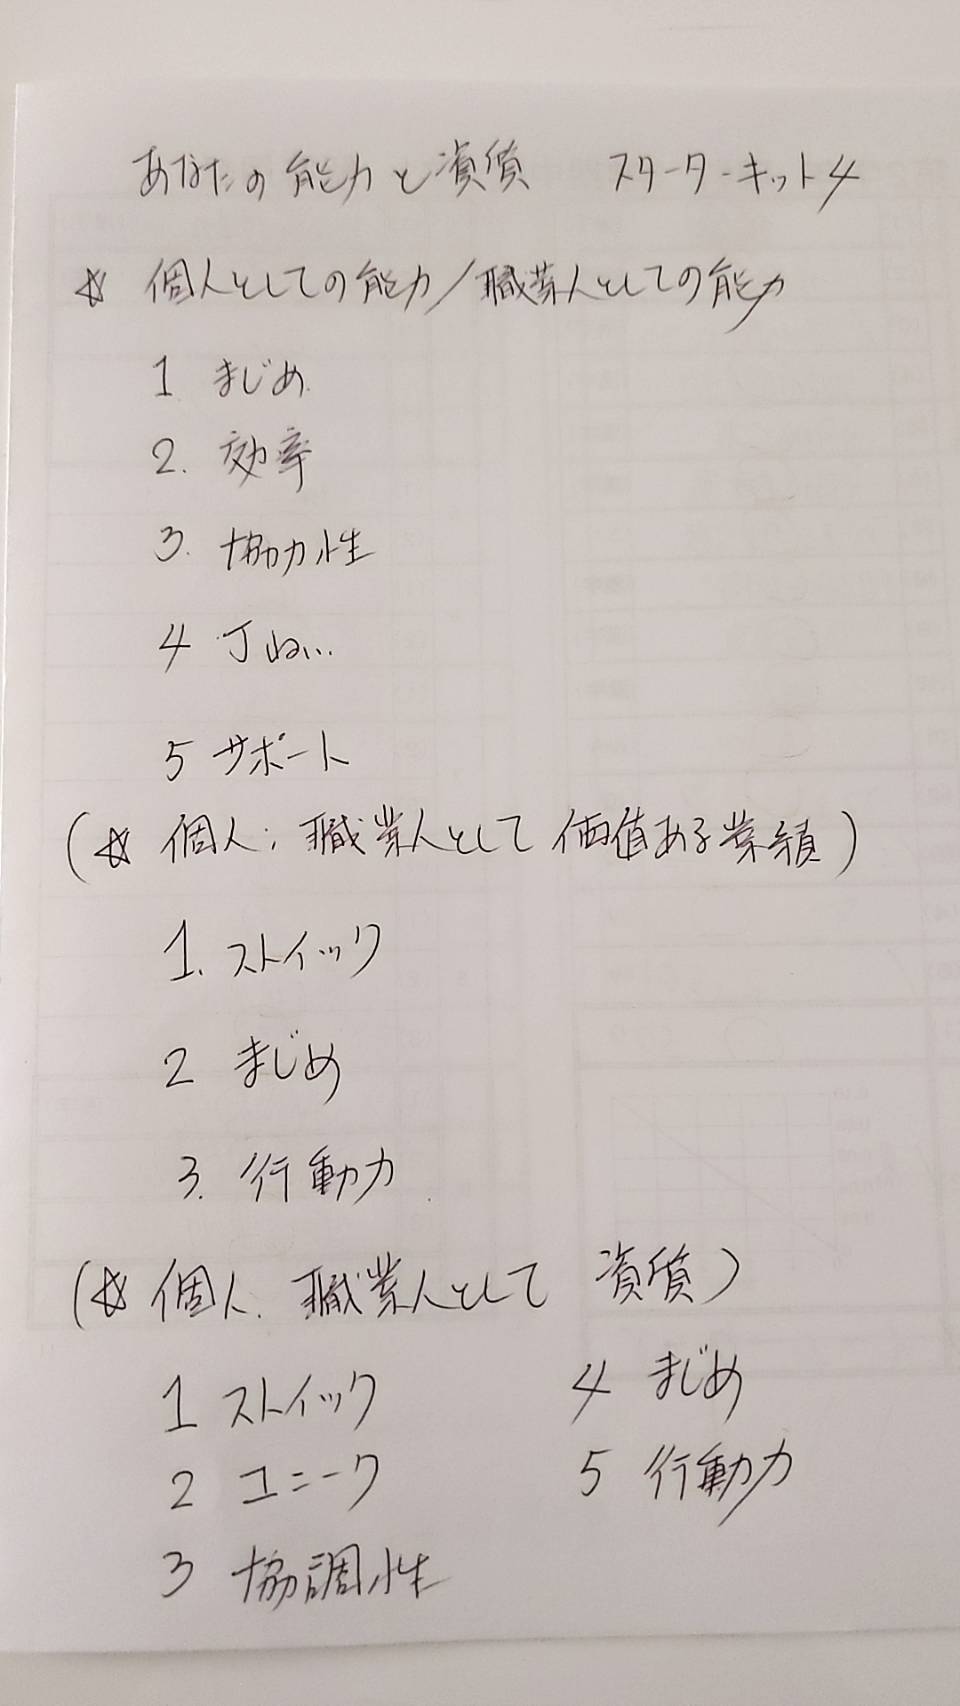 あなたの能力と資質 スターターキット4
☆ 個人としての能力/職業人としての能力
1 まじめ.
2. 効率
3. 協力性
4 丁ねい.
5 サポート
(☆ 個人; 職業人として 価値ある業績)
1. ストイック
2 まじめ
3. 行動力
(☆ 個人. 職業人として 資質)
1 ストイック
2 ユニーク
3 協調性
4 まじめ
5 行動力